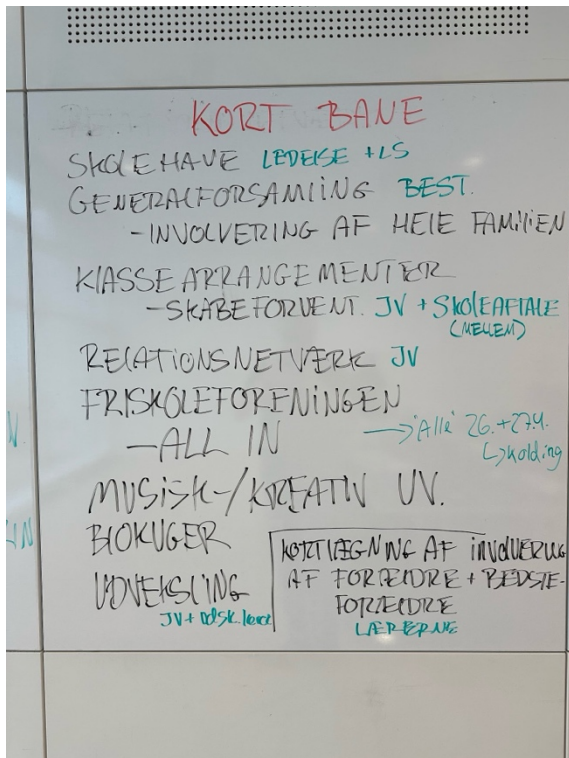 KORT BANE
SKOLEHAVE LEDELSE + LS
GENERALFORSAMLING BEST.
- INVOLVERING AF HELE FAMILIEN
KLASSEARRANGEMENTER
- SKABE FORVENT. JV + SKOLEAFTALE
(MELLEM)
RELATIONSNETVÆRK JV
FRISKOLEFORENINGEN
- ALL IN → "Alle" 26.+27.4.
↳ Kolding
MUSISK-/KREATIV UV.
BLOKUGER
UDVEKSLING
JV +
KORTLÆGNING AF INVOLVERING
AF FORÆLDRE + BEDSTE-
FORÆLDRE
LÆRERNE